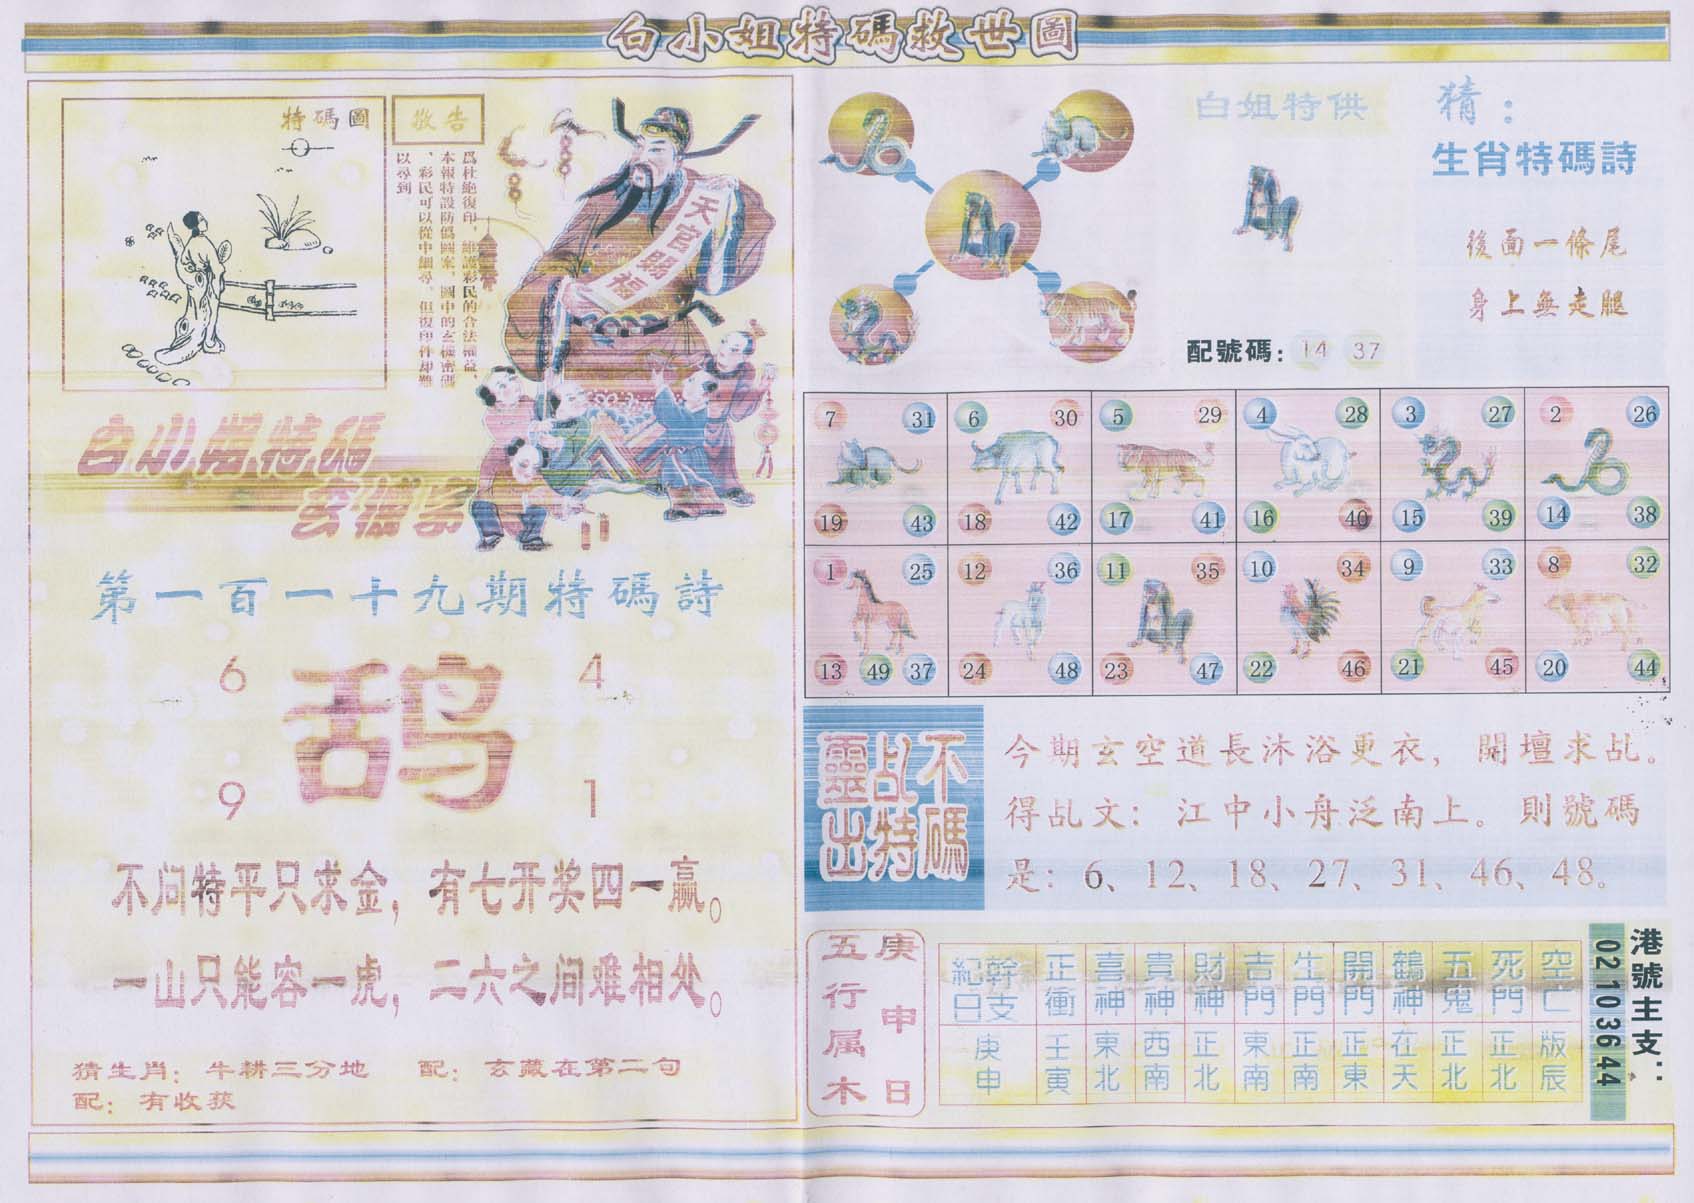 白小姐特碼救世圖
特碼圖
敬告
爲杜絶復印，維護彩民的合法權益，
本報特設防僞圖案，圖中的玄機密碼
，彩民可以從中細尋。但復印件却難
以尋到。
天官賜福
白小姐特碼
玄機字
第一百一十九期特碼詩
6 4
鸹
9 1
不问特平只求金，有七开奖四一赢。
一山只能容一虎，二六之间难相处。
猜生肖：牛耕三分地 配：玄藏在第二句
配：有收获
白姐特供
配號碼：14 37
猜：
生肖特碼詩
後面一條尾
身上無走腿
7 31 6 30 5 29 4 28 3 27 2 26
19 43 18 42 17 41 16 40 15 39 14 38
1 25 12 36 11 35 10 34 9 33 8 32
13 49 37 24 48 23 47 22 46 21 45 20 44
不碼
乩特
靈出
今期玄空道長沐浴更衣，開壇求乩。
得乩文：江中小舟泛南上。則號碼
是：6、12、18、27、31、46、48。
庚申日
五行属木
紀日幹支 正衝 喜神 貴神 財神 吉門 生門 開門 鶴神 五鬼 死門 空亡
庚申 壬寅 東北 西南 正北 東南 正南 正東 在天 正北 正北 版辰
港號主支：
02 10 36 44